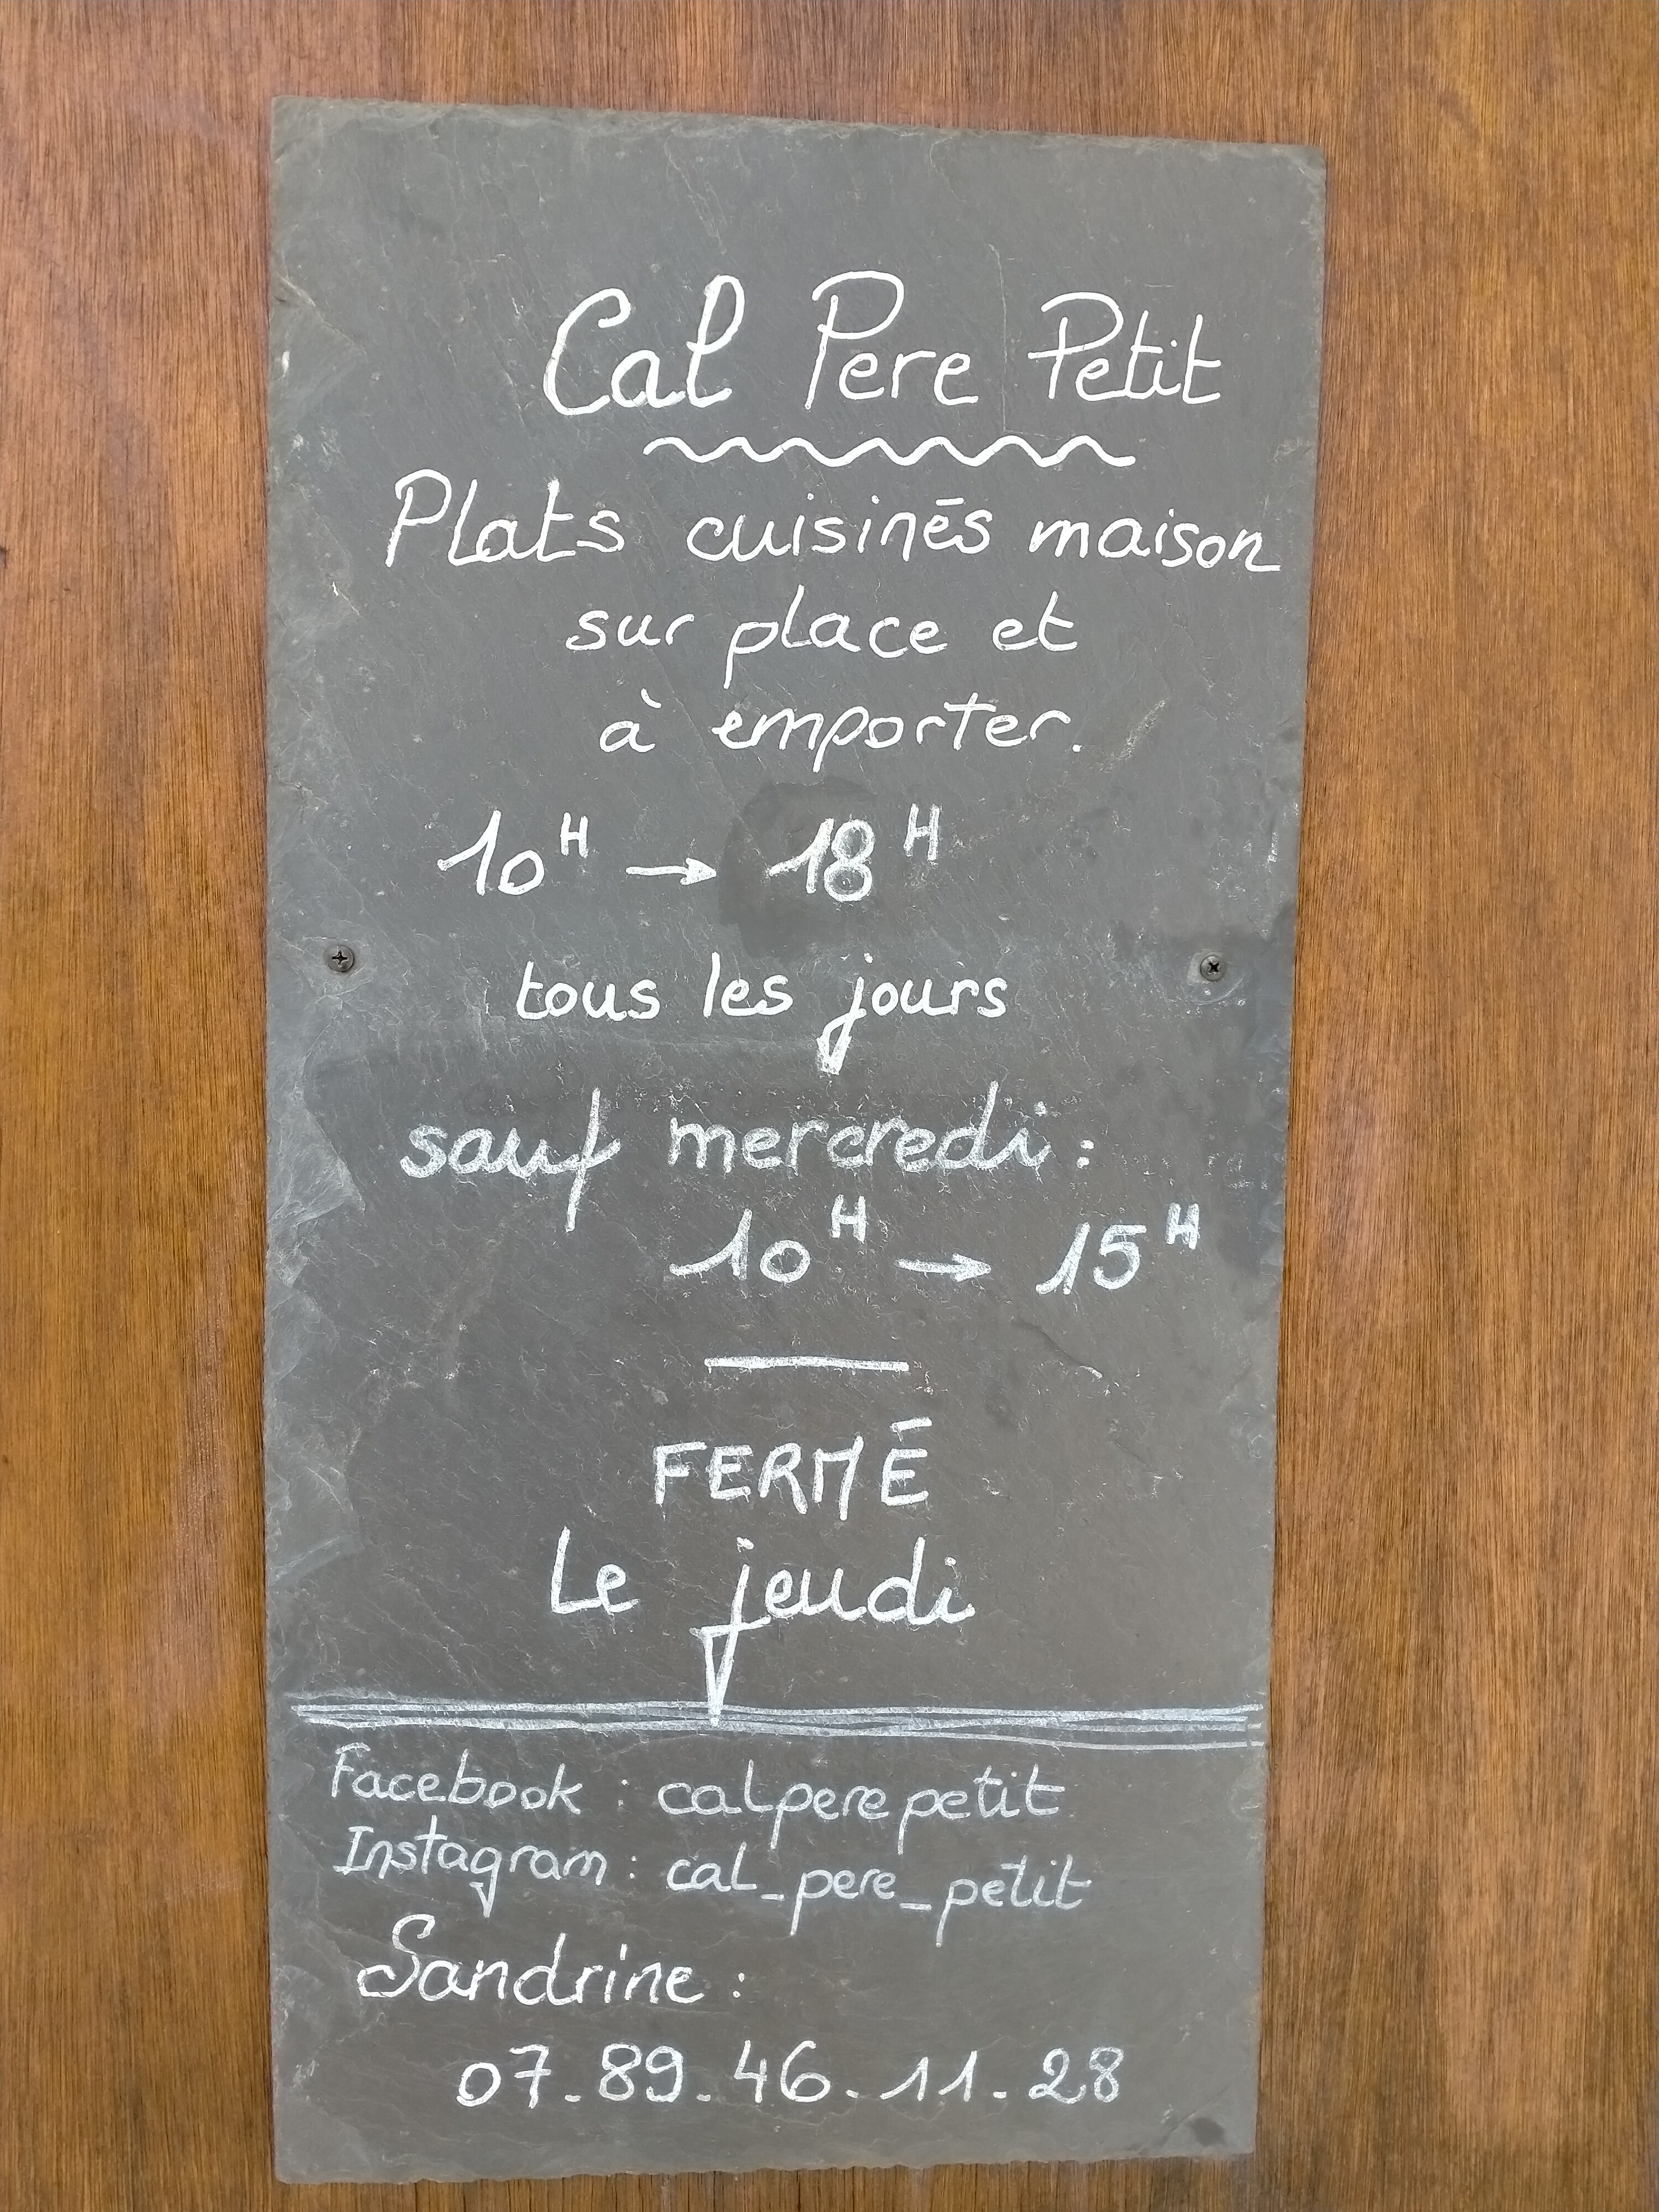 Cal Pere Petit
Plats cuisinés maison
sur place et
à emporter.
10H → 18H
tous les jours
sauf mercredi :
10H → 15H
FERMÉ
Le jeudi
Facebook : calperepetit
Instagram : cal_pere_petit
Sandrine :
07_89_46.11.28